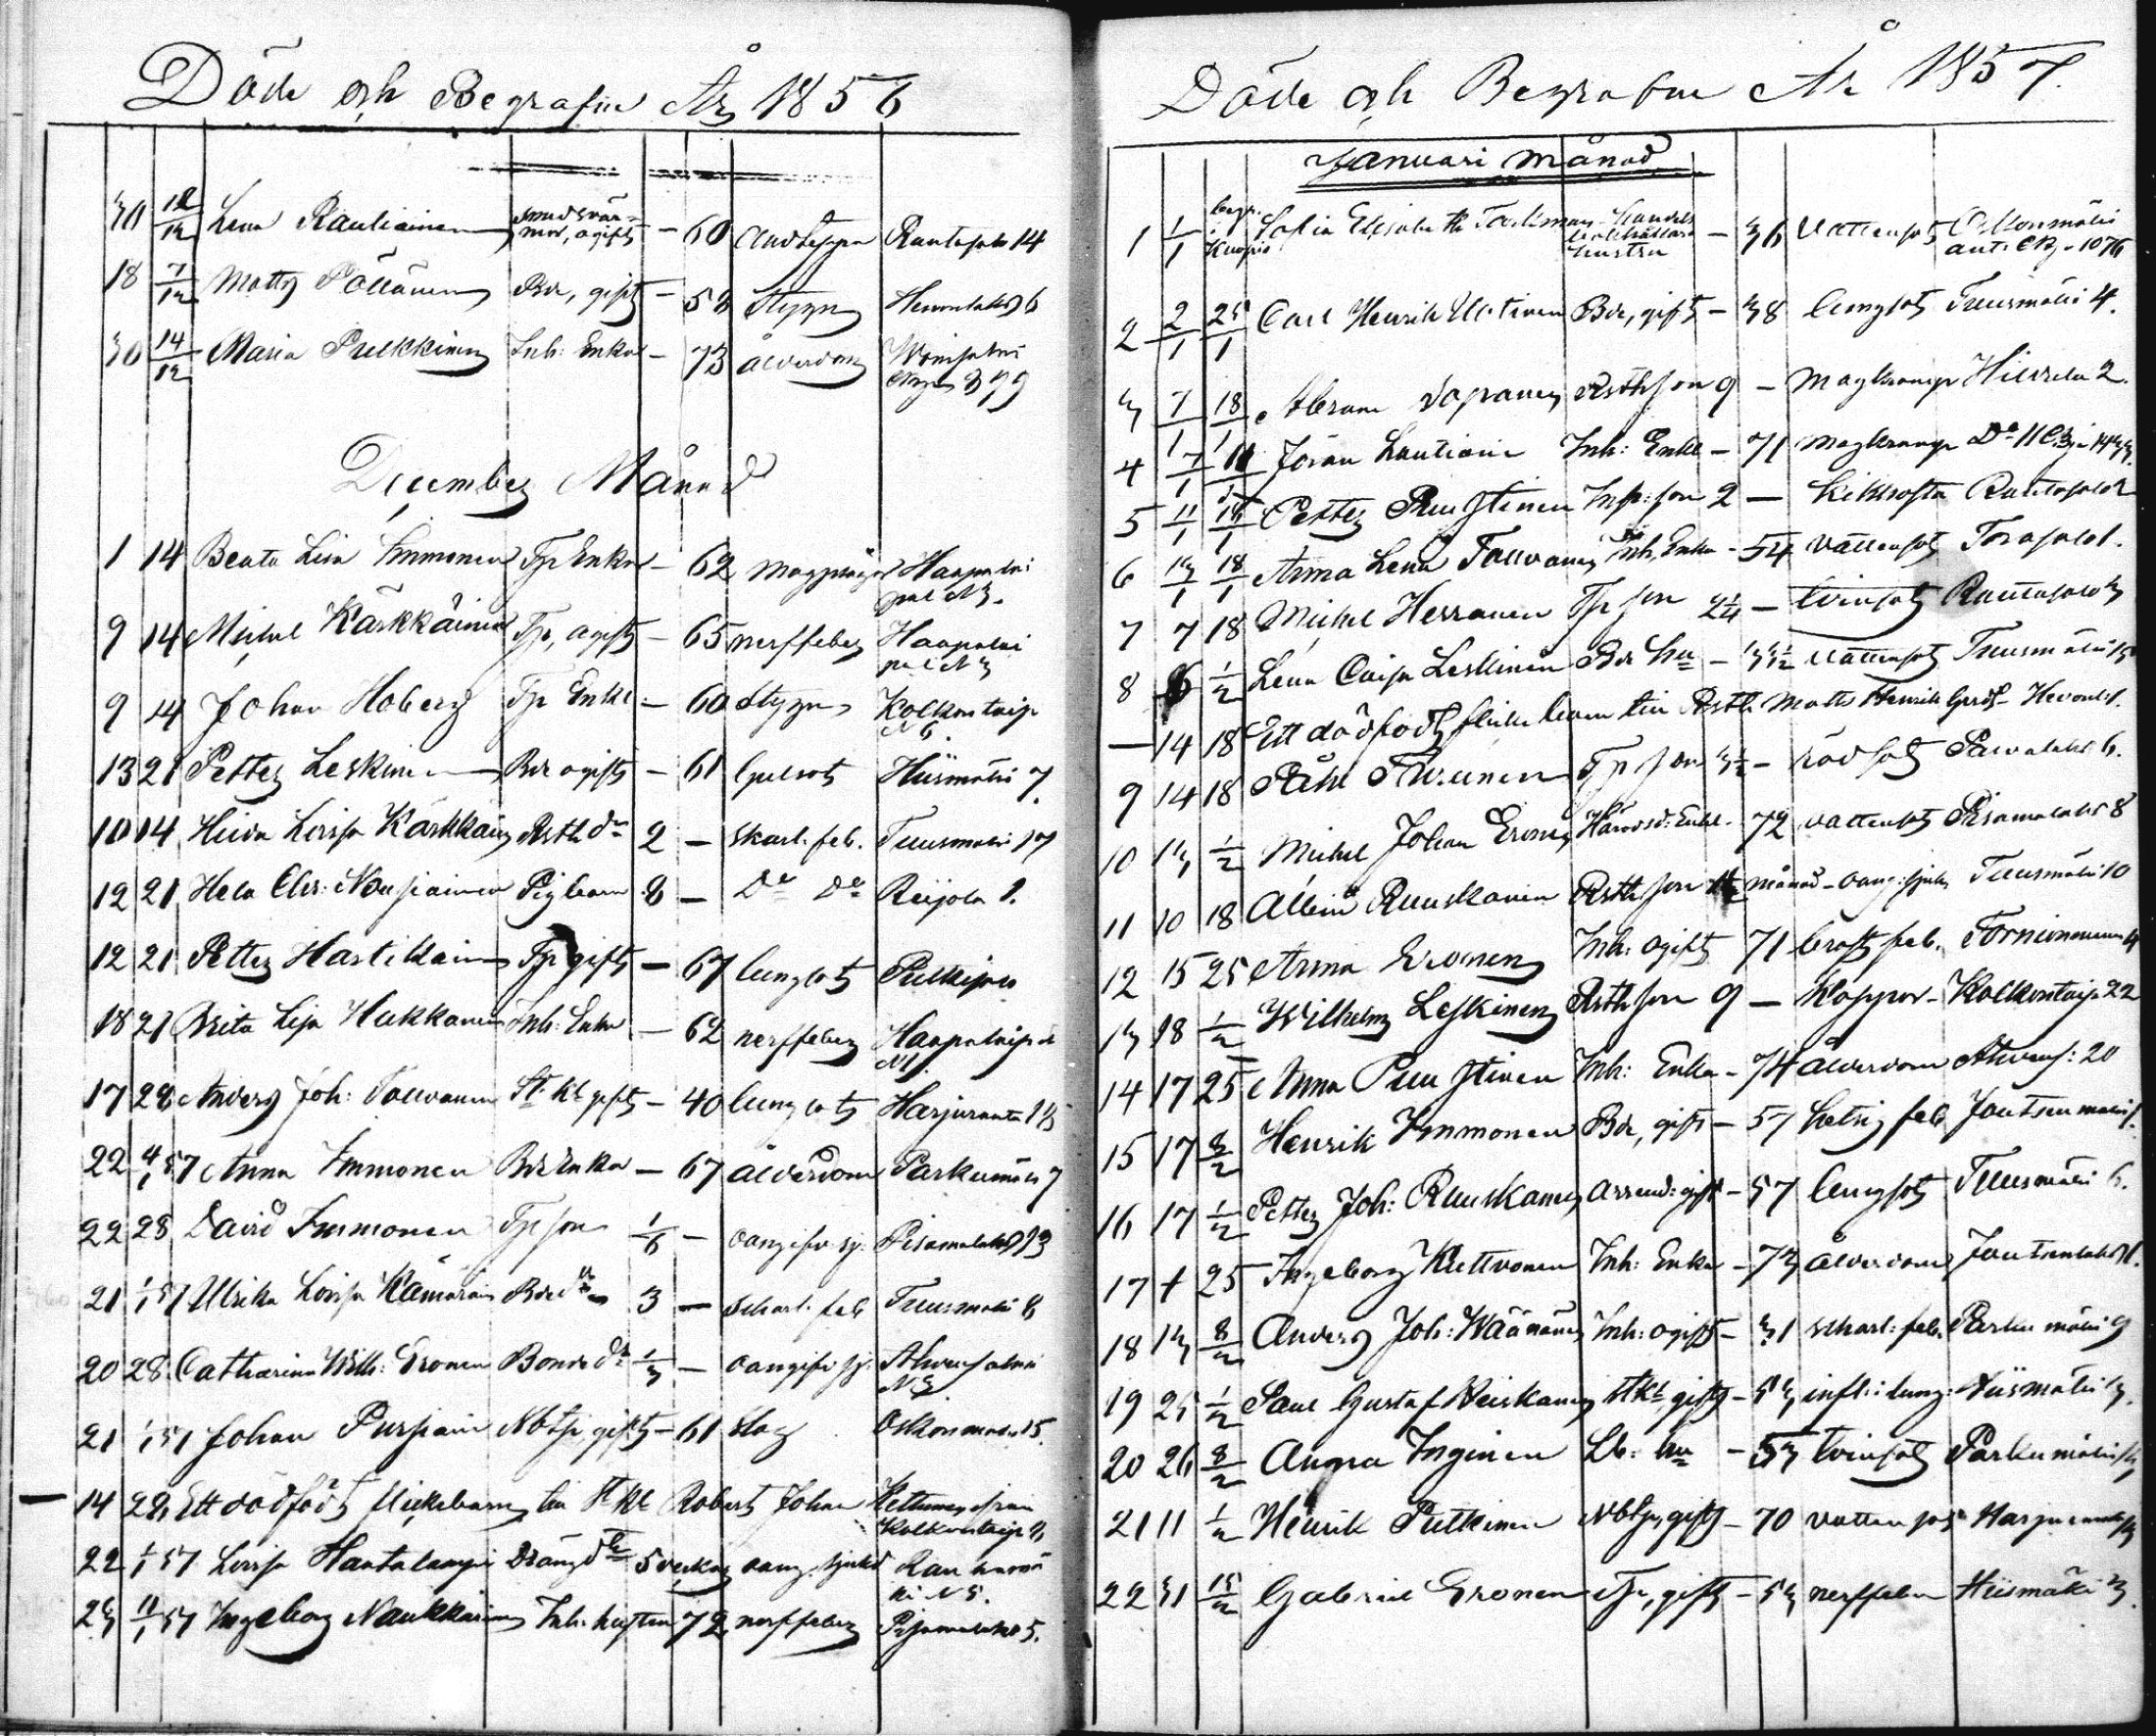 Döde och Begrafne År 1856
30 12/12 Lena Rautiainen ogift - 60 Andtäppa Rantasalo 14
18 7/12 Matts Pöllänen Bde, gift - 58 Styng Hevonlaks 6
30 14/12 Maria Pulkkinen Inh: Enka - 73 ålderdom
December Månad
1 14 Beata Lisa Immonen Tp Enka - 62 magplågor Haapalai
9 14 Michel Kärkkäinen Tp, ogift - 65 nerffeber Haapalai
9 14 Johan Hoberg Tp Enkl - 60 Styng Kolkontaip
N 6.
13 21 Petter Leskinen Bde ogift - 61 Gulsot Hiismäki 7
10 14 Lovisa Kärkkäin Rsth dr 2 - skarl. feb. Tuusmäki 17
12 21 Hela Chr: Nousiainen Pigbarn 8 - Do Do Reijola 1.
12 21 Petter Hartikkain Tp gift - 67 lungsot Pulkisalo
18 21 Brita Lisa Hukkanen Inh: Enka - 62 nerffeber
17 28 Anders Joh: Tolvanen St. kl gift - 40 lungsot Harjuranta
22 4/1 57 Anna Immonen Bde Enka - 67 ålderdom Parkumäki 7
22 28 David Immonen Tp son 1/6 - oangifv sj: Pisamalaks 13
21 1/1 57 Ulrika Lovisa Kämäräin Bde dr 3 - scharl. feb Tuusmäki 8
20 28 Catharina Wilh: Eronen Bonde dr 1/3 - oangifv sj: Ahvensalmi
N 3.
21 1/1 57 Johan Pursiain Nbtp, gift - 61 slag Oskonmäki 15.
- 14 28 Ett dödfödt flickebarn till St kl Robert Johan Kettunen från
Kolkontaip 8
22 1/1 57 Lovisa Hautalampi Dräng dr 5 veckor oang. sjukd
N 5.
23 11/1 57 Ingeborg Naukkarinen Inh: hustru 72 nerffeber Pisamalaks 5.
Döde och Begrafne År 1857.
Januari månad
begr.
1 1/1 Kuopio Sofia Elisabeth hustru - 36 Vattensot
2 2/1 25/1 Carl Henrik Bde, gift - 38 lungsot Tuusmäki 4.
3 7/1 18/1 Abram Sopranen Rsth son 9 - Magkramp Hievelä 2.
4 7/1 11/1 Jöran Lautiain Inh: Enkl - 71 Magkramp Do 11
5 11/1 Petter Puustinen Inh: son 2 - Kikhosta Rantasalo 2
6 13/1 18/1 Anna Lena Tolvanen Inh, Enka - 54 Vattensot Torasalo 1.
7 7 18 Michel Herranen Tp son 2 1/4 - tvinsot Rantasalo 3
8 6 1/2 Lena Caisa Leskinen Bde hu - 33 1/2 Vattensot Tuusmäki 15
- 14 18 Ett dödfödt flickebarn till Rsth Matts Henrik Hevonl. 1.
9 14 18 Påhl Tp son 3 1/2 - rödsot Paivalaks 6.
10 13 1/2 Michel Johan Eronen Enkl. - 72 vattensot Pisamalaks 8
11 10 18 Albin Ruuskanen Rsth son månad - oang. sjukd Tuusmäki 10
12 15 25 Anna Eronen Inh: ogift 71 bröst feb. Tornionniemi 4
13 18 1/2 Wilhelm Leskinen Rsth son 9 - Koppor Kolkontaip 22
14 17 25 Anna Puustinen Inh: Enka - 74 ålderdom Ahvens: 20
15 17 8/2 Henrik Immonen Bde, gift - 57 hetsig feb Joutsenmäki 1.
16 17 1/2 Petter Joh: Ruuskanen Arrend: gift - 57 lungsot Tuusmäki 6.
17 + 25 Ingeborg Kettvonen Inh: Enka - 73 ålderdom
18 13 8/2 Anders Joh: Wäänänen Inh: ogift - 31 scharl: feb. Parkumäki 9
19 25 1/2 Paul Gustaf Heiskanen St kl gift - 53 infl: i lung: Hiismäki 3.
20 26 8/2 Anna Inginen Lb: hu - 53 tvinsot Parkumäki
21 11 1/2 Henrik Putkinen Nbtp, gift - 70 vattensot
22 31 15/2 Gabriel Eronen Tp, gift - 53 nerffeber Hiismäki 3